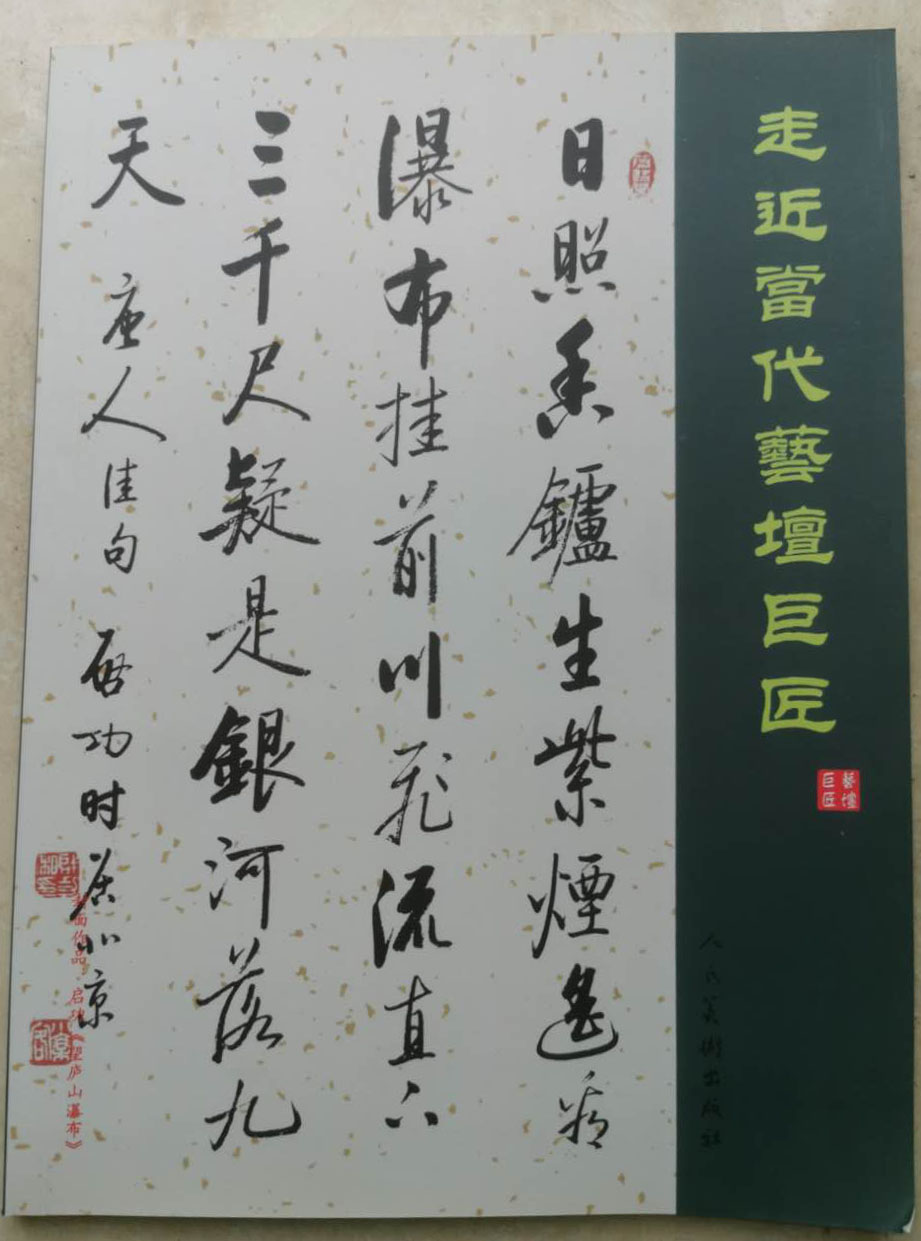 走近當代藝壇巨匠
藝壇
巨匠
人民美術出版社
日照香鑪生紫煙遙看
瀑布挂前川飛流直下
三千尺疑是銀河落九
天 唐人佳句 啟功时居北京
封面作品：启功《望庐山瀑布》